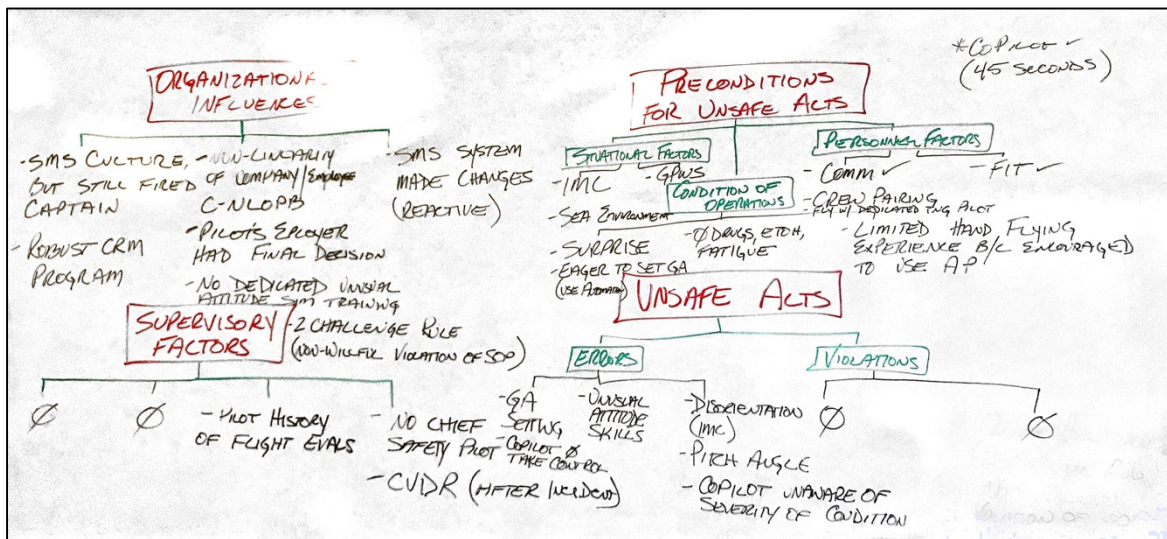 *COPILOT ✓
(45 SECONDS)
ORGANIZATIONA
INFLUENCES
- SMS CULTURE,
BUT STILL FIRED
CAPTAIN
- ROBUST CRM
PROGRAM
- NON-LINEARITY
OF COMPANY/EMPLOYEE
C-NLOPB
- PILOT'S EPLOYER
HAD FINAL DECISION
- NO DEDICATED UNUSUAL
ATTITUDE SIM TRAINING
- 2 CHALLENGE RULE
(NON-WILLFUL VIOLATION OF SOP)
- SMS SYSTEM
MADE CHANGES
(REACTIVE)
PRECONDITIONS
FOR UNSAFE ACTS
SITUATIONAL FACTORS
- IMC
- GPWS
- SEA ENVIRONMENT
- SURPRISE
- EAGER TO SET GA
(USE AUTOMATION)
CONDITION OF
OPERATIONS
- Ø DRUGS, ETOH,
FATIGUE
PERSONNEL FACTORS
- COMM ✓
FIT ✓
- CREW PAIRING
- FLY W/ DEDICATED TNG PILOT
- LIMITED HAND FLYING
EXPERIENCE B/C ENCOURAGED
TO USE AP
SUPERVISORY
FACTORS
Ø
Ø
- PILOT HISTORY
OF FLIGHT EVALS
- NO CHIEF
SAFETY PILOT
- CVDR (AFTER INCIDENT)
UNSAFE ACTS
ERRORS
- GA
SETTING
- COPILOT Ø
TAKE CONTROL
- UNUSUAL
ATTITUDE
SKILLS
- DISORIENTATION
(IMC)
- PITCH ANGLE
- COPILOT UNAWARE OF
SEVERITY OF CONDITION
VIOLATIONS
Ø
Ø